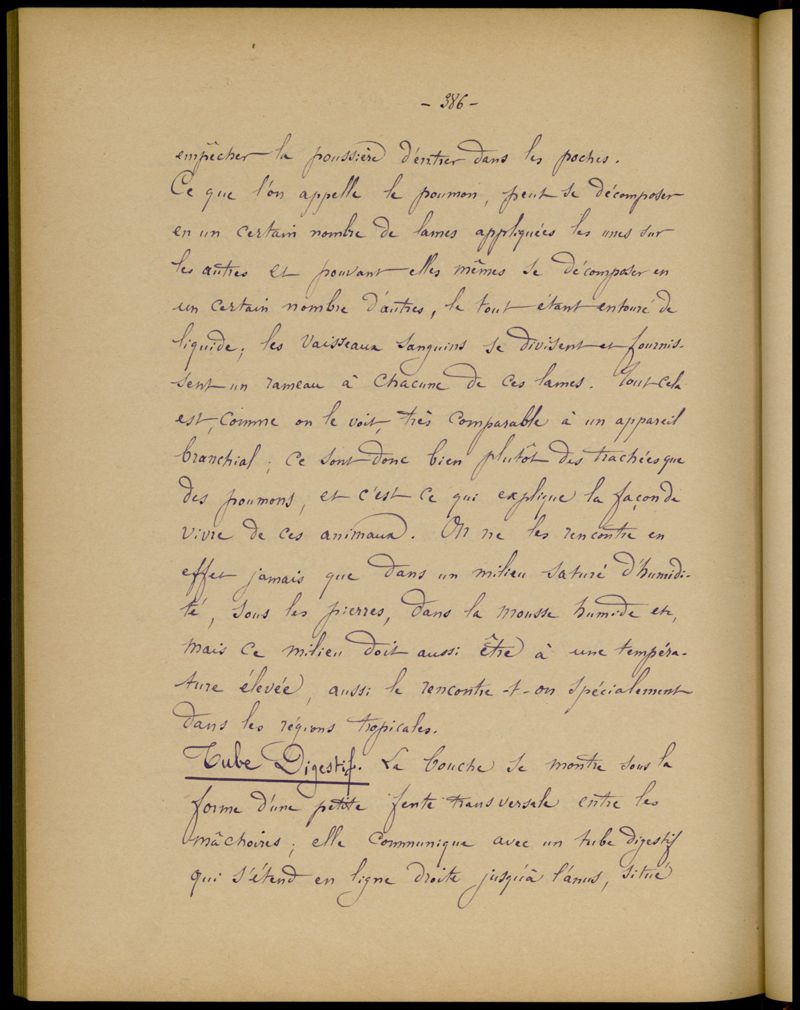 - 386 -
empêcher la poussière d'entrer dans les poches.
Ce que l'on appelle le poumon, peut se décomposer
en un certain nombre de lames appliquées les unes sur
les autres et pouvant elles mêmes se décomposer en
un certain nombre d'autres, le tout étant entouré de
liquide; les vaisseaux sanguins se divisent et fournis-
sent un rameau à chacune de ces lames. Tout cela
est, comme on le voit, très comparable à un appareil
branchial; ce sont donc bien plutôt des trachées que
des poumons, et c'est ce qui explique la façon de
vivre de ces animaux. On ne les rencontre en
effet jamais que dans un milieu saturé d'humidi-
té, sous les pierres, dans la mousse humide etc,
mais ce milieu doit aussi être à une tempéra-
ture élevée, aussi le rencontre-t-on spécialement
dans les régions tropicales.
Tube Digestif. La bouche se montre sous la
forme d'une petite fente transversale entre les
mâchoires; elle communique avec un tube digestif
qui s'étend en ligne droite jusqu'à l'anus, situé